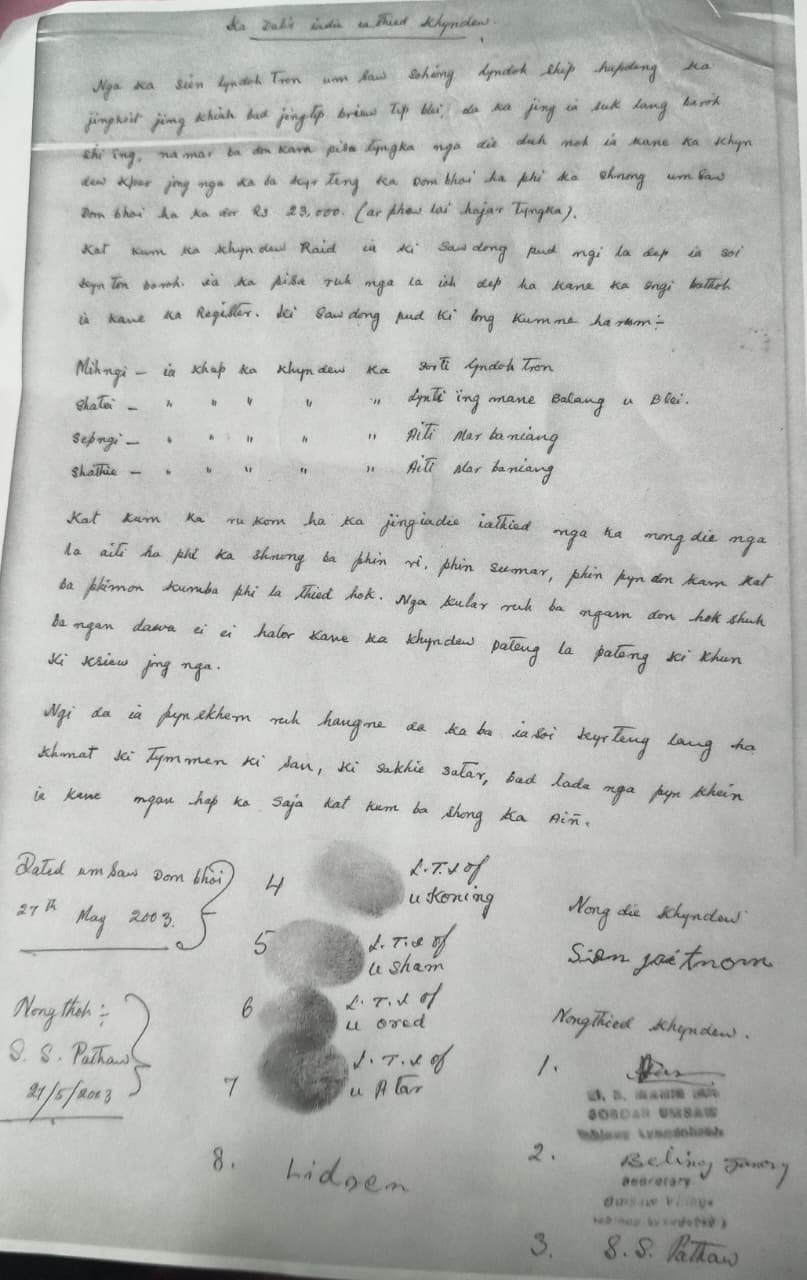 Ka Dalil iadie ia thied Khyndew.
Nga Ka Sien Lyndoh Tron um Saw Lyndoh Ship hapdeng ka
jingkoit jing khiah bad jingtip briew Tip blei, da ka jing ia suk lang baroh
shi ing, na mar ba don kam pisa Tyngka nga die duh noh ia kane ka Khyn
dew jong nga ka ba kyr teng ka Dom bhoi ha phi ka Shnong um Saw
Dom bhoi ha ka dor Rs 23,000. (ar phew lai hajar Tyngka).
Kat kum ka Khyndew Raid ia ki Saw dong pud ngi la dep ia soi
kyn ton baroh. ia ka pisa ruh nga la ioh dep ha kane ka sngi bathoh
ia kane ka Register. Ki Saw dong pud Ki long Kumne harum:-
Mihngi - ia khap ka khyndew ka Lyndoh Tron
Shatei - " " " " " Lynti ing mane Balang u Blei.
Sepngi - " " " " " Aiti Mar baniang
Shathie - " " " " " Aiti Mar baniang
Kat kum ka ru kom ha ka jingiadie iathied nga ka nong die nga
la aiti ha phi ka Shnong ba phin ri, phin sumar, phin pyn don kam kat
ba phimon kumba phi la thied hok. Nga kular ruh ba ngam don hok shuh
ba ngan dawa ei ei halor kane ka Khyndew pateng la pateng ki khun
ki ksiew jong nga.
Ngi da ia pyn skhem ruh hangne da ka ba ia soi kyrteng lang ha
khmat ki Tymmen ki San, ki sakhie satar, bad lada nga pyn khein
ia kane ngan hap ka Saja kat kum ba shong ka Aiñ.
Dated um Saw Dom bhoi
27th May 2003.
Nong thoh:-
S. S. Pathaw
27/5/2003
4 L.T.I of
u Koning
5 L.T.I of
u Sham
6 L.T.I of
u Ored
7 L.T.I of
u Atar
8. Lidsen
Nong die Khyndew
Sien jaitnorn
Nongthied Khyndew.
1.
SORDAR UMSAW
2. Beling
Secretary
Umsaw Village
3. S.S. Pathaw